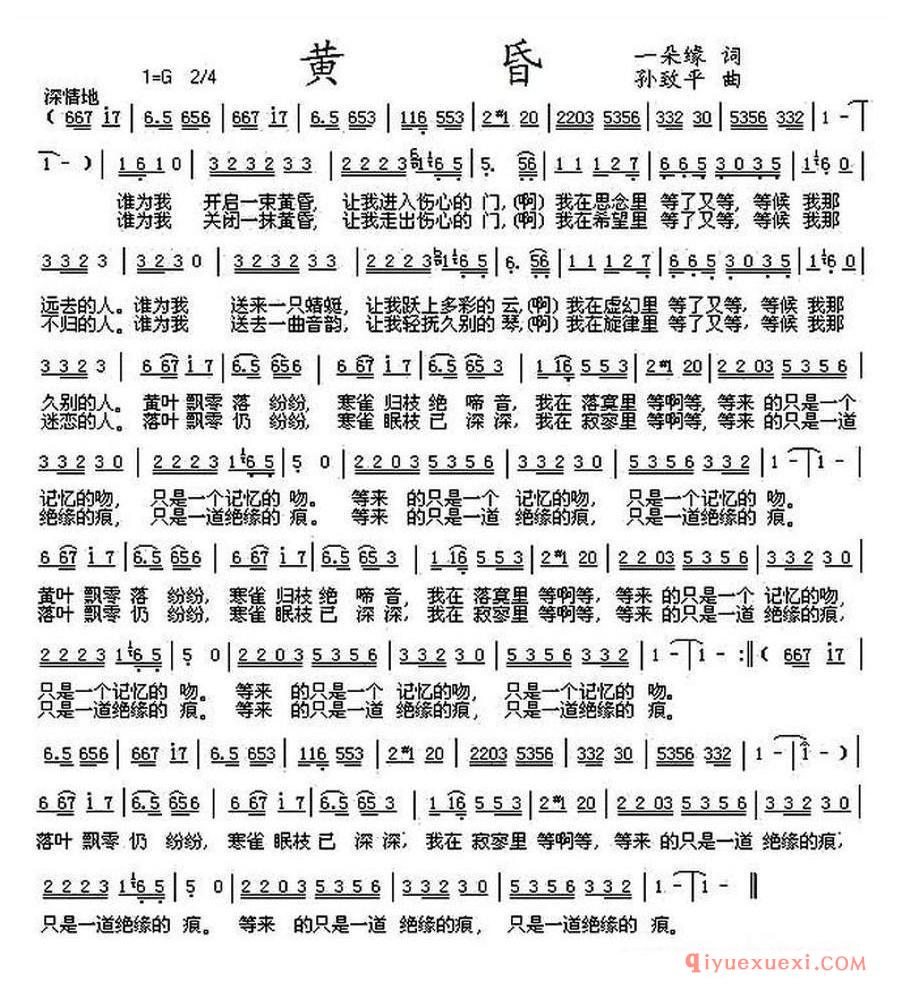 黄 昏
一朵缘 词
孙致平 曲
1=G 2/4
深情地
( 667 i7 | 6.5 656 | 667 i7 | 6.5 653 | 116 553 | 2#1 20 | 2203 5356 | 332 30 | 5356 332 | 1 - |
1 - ) | 1 6 1 0 | 3 2 3 2 3 3 | 2 2 2 3 1 6 5 | 5. 56 | 1 1 1 2 7 | 6 6 5 3 0 3 5 | 1 6 0 |
谁为我 开启一束黄昏, 让我进入伤心的 门,(啊) 我在思念里 等了又等, 等候 我那
谁为我 关闭一抹黄昏, 让我走出伤心的 门,(啊) 我在希望里 等了又等, 等候 我那
3 3 2 3 | 3 2 3 0 | 3 2 3 2 3 3 | 2 2 2 3 1 6 5 | 6. 56 | 1 1 1 2 7 | 6 6 5 3 0 3 5 | 1 6 0 |
远去的人。谁为我 送来一只蜻蜓, 让我跃上多彩的 云,(啊) 我在虚幻里 等了又等, 等候 我那
不归的人。谁为我 送去一曲音韵, 让我轻抚久别的 琴,(啊) 我在旋律里 等了又等, 等候 我那
3 3 2 3 | 6 67 i 7 | 6.5 656 | 6 67 i 7 | 6.5 65 3 | 1 16 5 5 3 | 2#1 20 | 2 2 03 5 3 5 6 |
久别的人。 黄叶 飘零 落 纷纷, 寒雀 归枝 绝 啼音, 我在 落寞里 等啊等, 等来 的只是一个
迷恋的人。 落叶 飘零 仍 纷纷, 寒雀 眠枝 已 深深, 我在 寂寥里 等啊等, 等来 的只是一道
3 3 2 3 0 | 2 2 2 3 1 6 5 | 5 0 | 2 2 0 3 5 3 5 6 | 3 3 2 3 0 | 5 3 5 6 3 3 2 | 1 - | 1 - |
记忆的吻, 只是一个记忆的 吻。 等来 的只是一个 记忆的吻, 只是一个记忆的 吻。
绝缘的痕, 只是一道绝缘的 痕。 等来 的只是一道 绝缘的痕, 只是一道绝缘的 痕。
6 67 i 7 | 6.5 656 | 6 67 i 7 | 6.5 65 3 | 1 16 5 5 3 | 2#1 20 | 2 2 0 3 5 3 5 6 | 3 3 2 3 0 |
黄叶 飘零 落 纷纷, 寒雀 归枝 绝 啼音, 我在 落寞里 等啊等, 等来 的只是一个 记忆的吻,
落叶 飘零 仍 纷纷, 寒雀 眠枝 已 深深, 我在 寂寥里 等啊等, 等来 的只是一道 绝缘的痕,
2 2 2 3 1 6 5 | 5 0 | 2 2 0 3 5 3 5 6 | 3 3 2 3 0 | 5 3 5 6 3 3 2 | 1 - | 1 - :‖ ( 667 i7 |
只是一个记忆的 吻。 等来 的只是一个 记忆的吻, 只是一个记忆的 吻。
只是一道绝缘的 痕。 等来 的只是一道 绝缘的痕, 只是一道绝缘的 痕。
6.5 656 | 667 i7 | 6.5 653 | 116 553 | 2#1 20 | 2203 5356 | 332 30 | 5356 332 | 1 - | 1 - )
6 67 i 7 | 6.5 656 | 6 67 i 7 | 6.5 65 3 | 1 16 5 5 3 | 2#1 20 | 2 2 0 3 5 3 5 6 | 3 3 2 3 0 |
落叶 飘零 仍 纷纷, 寒雀 眠枝 已 深深, 我在 寂寥里 等啊等, 等来 的只是一道 绝缘的痕,
2 2 2 3 1 6 5 | 5 0 | 2 2 0 3 5 3 5 6 | 3 3 2 3 0 | 5 3 5 6 3 3 2 | 1 - | 1 - ‖
只是一道绝缘的 痕。 等来 的只是一道 绝缘的痕, 只是一道绝缘的 痕。
qiyuexuexi.com